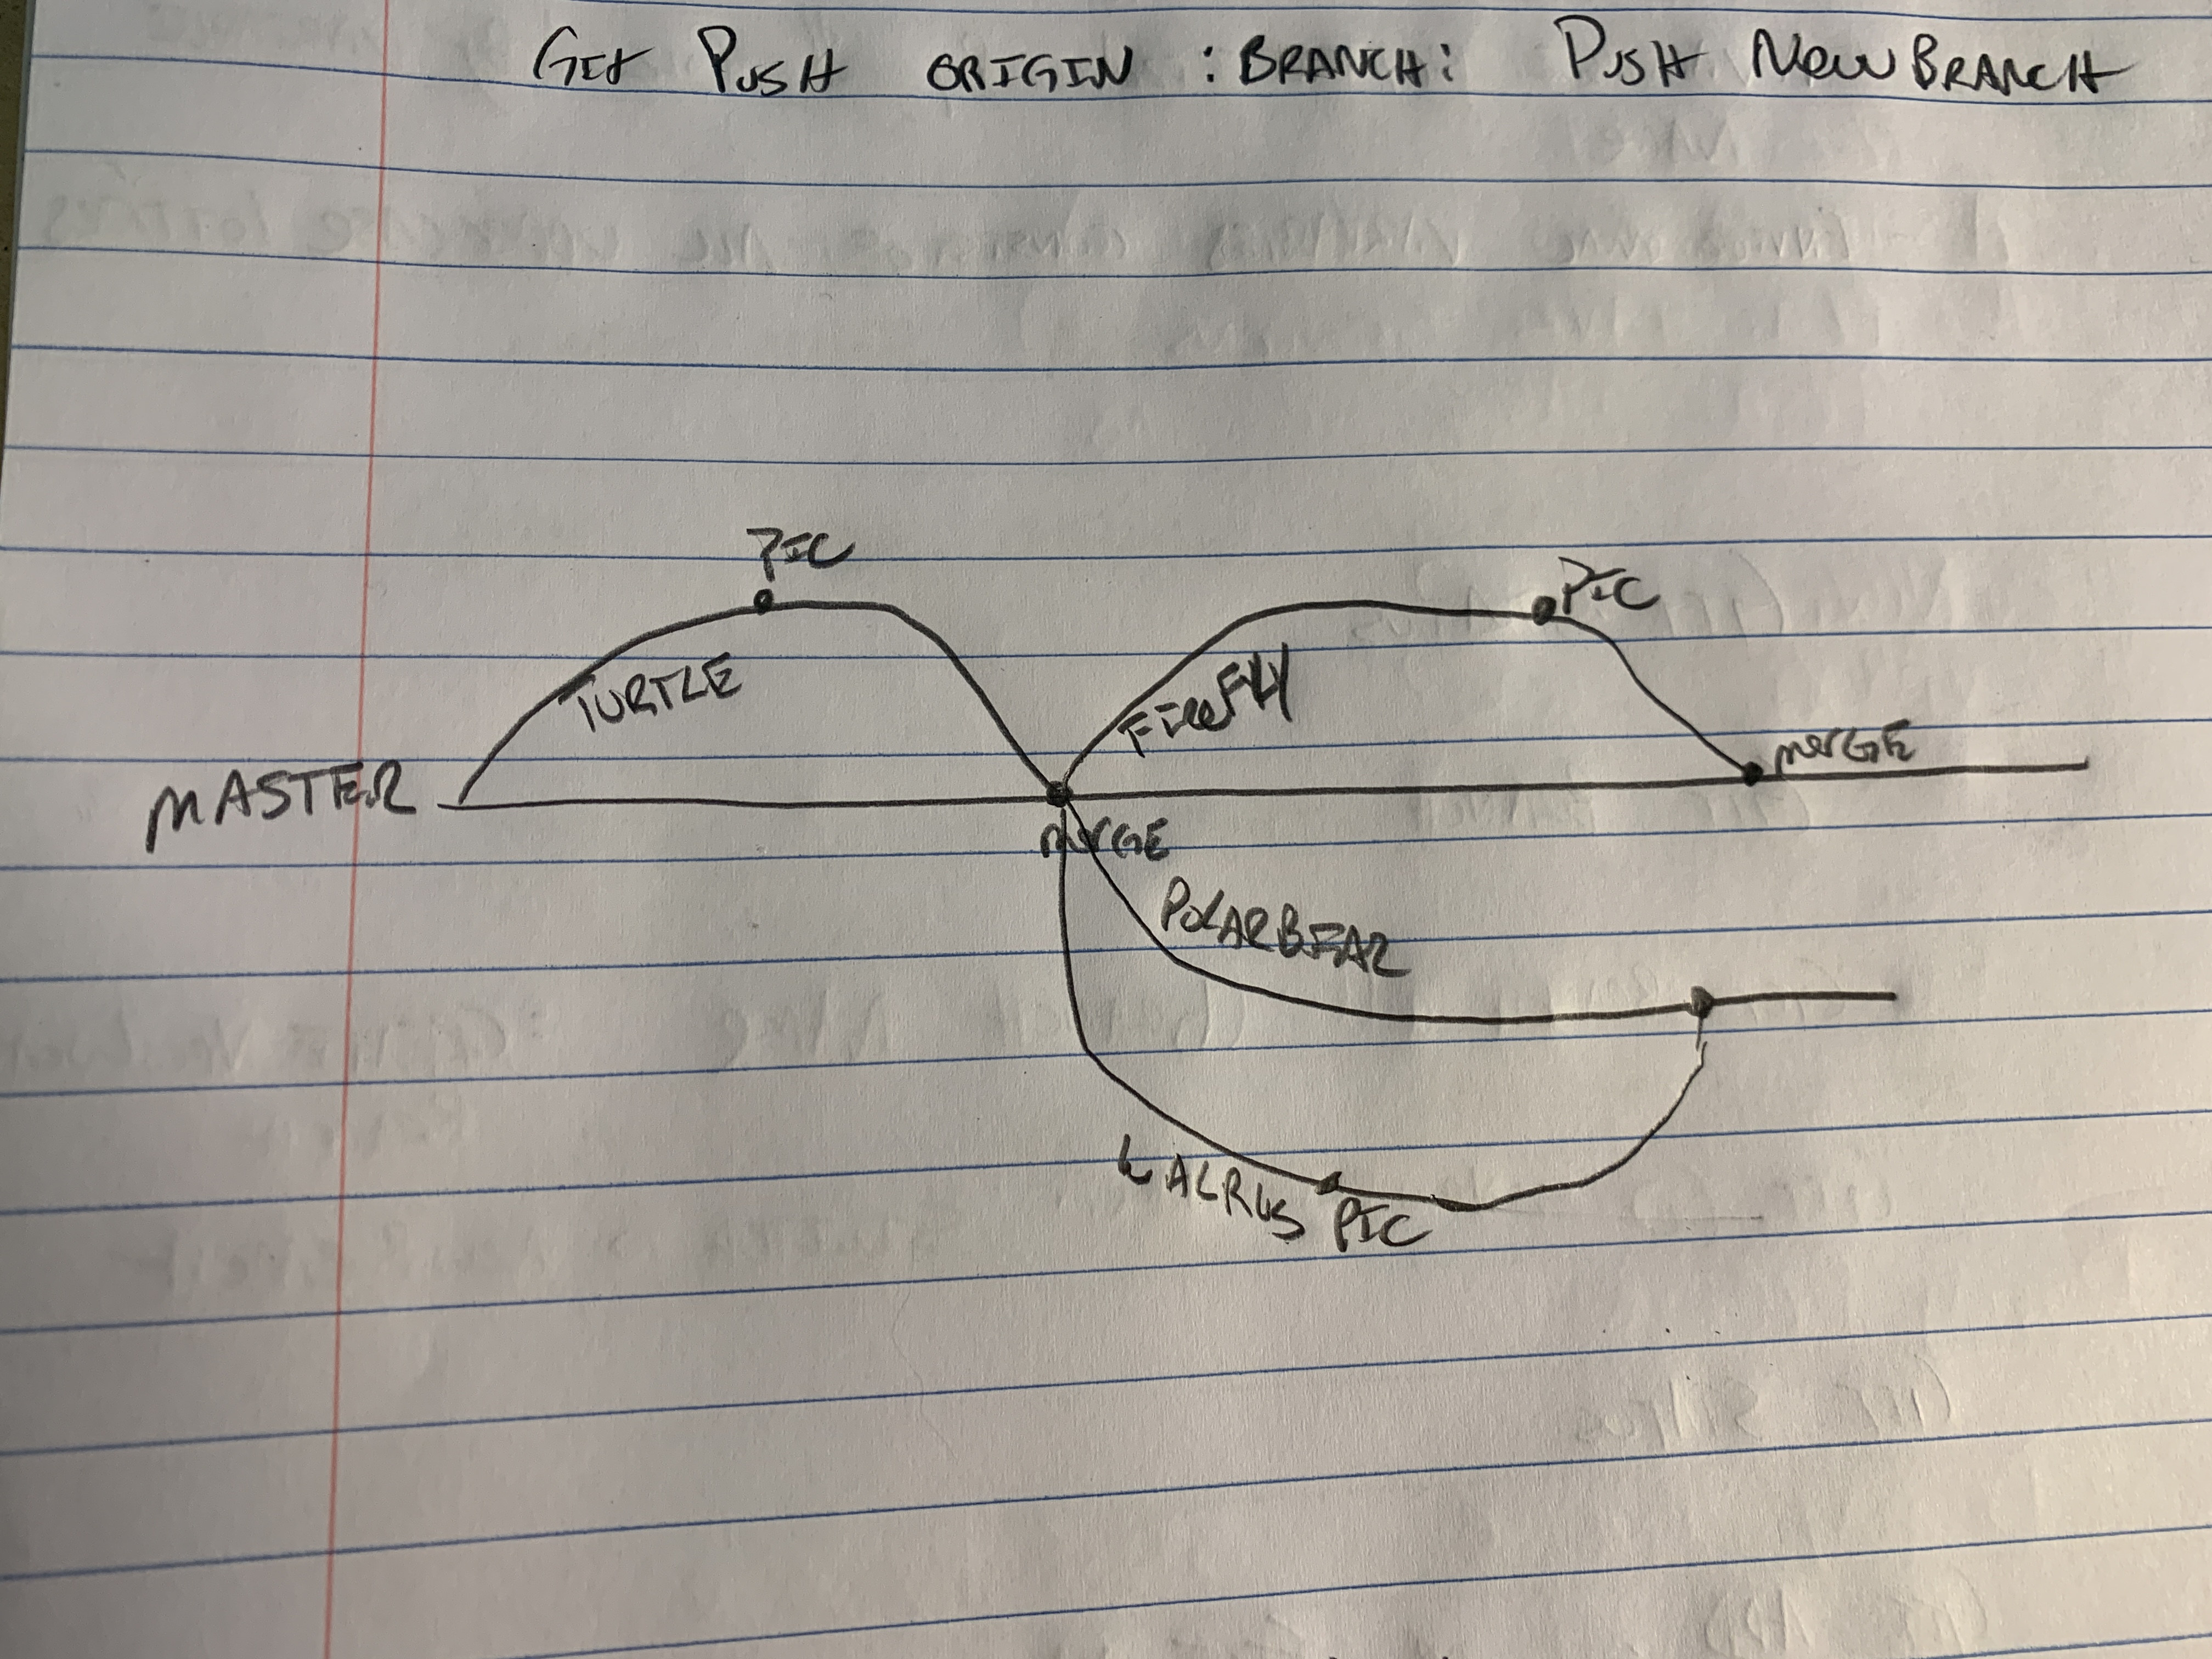 Git Push ORIGIN : BRANCH : Push New BRANCH
PIC
PIC
TURTLE
MASTER
FireFly
merge
merGE
POLARBEAR
WALRUS PIC